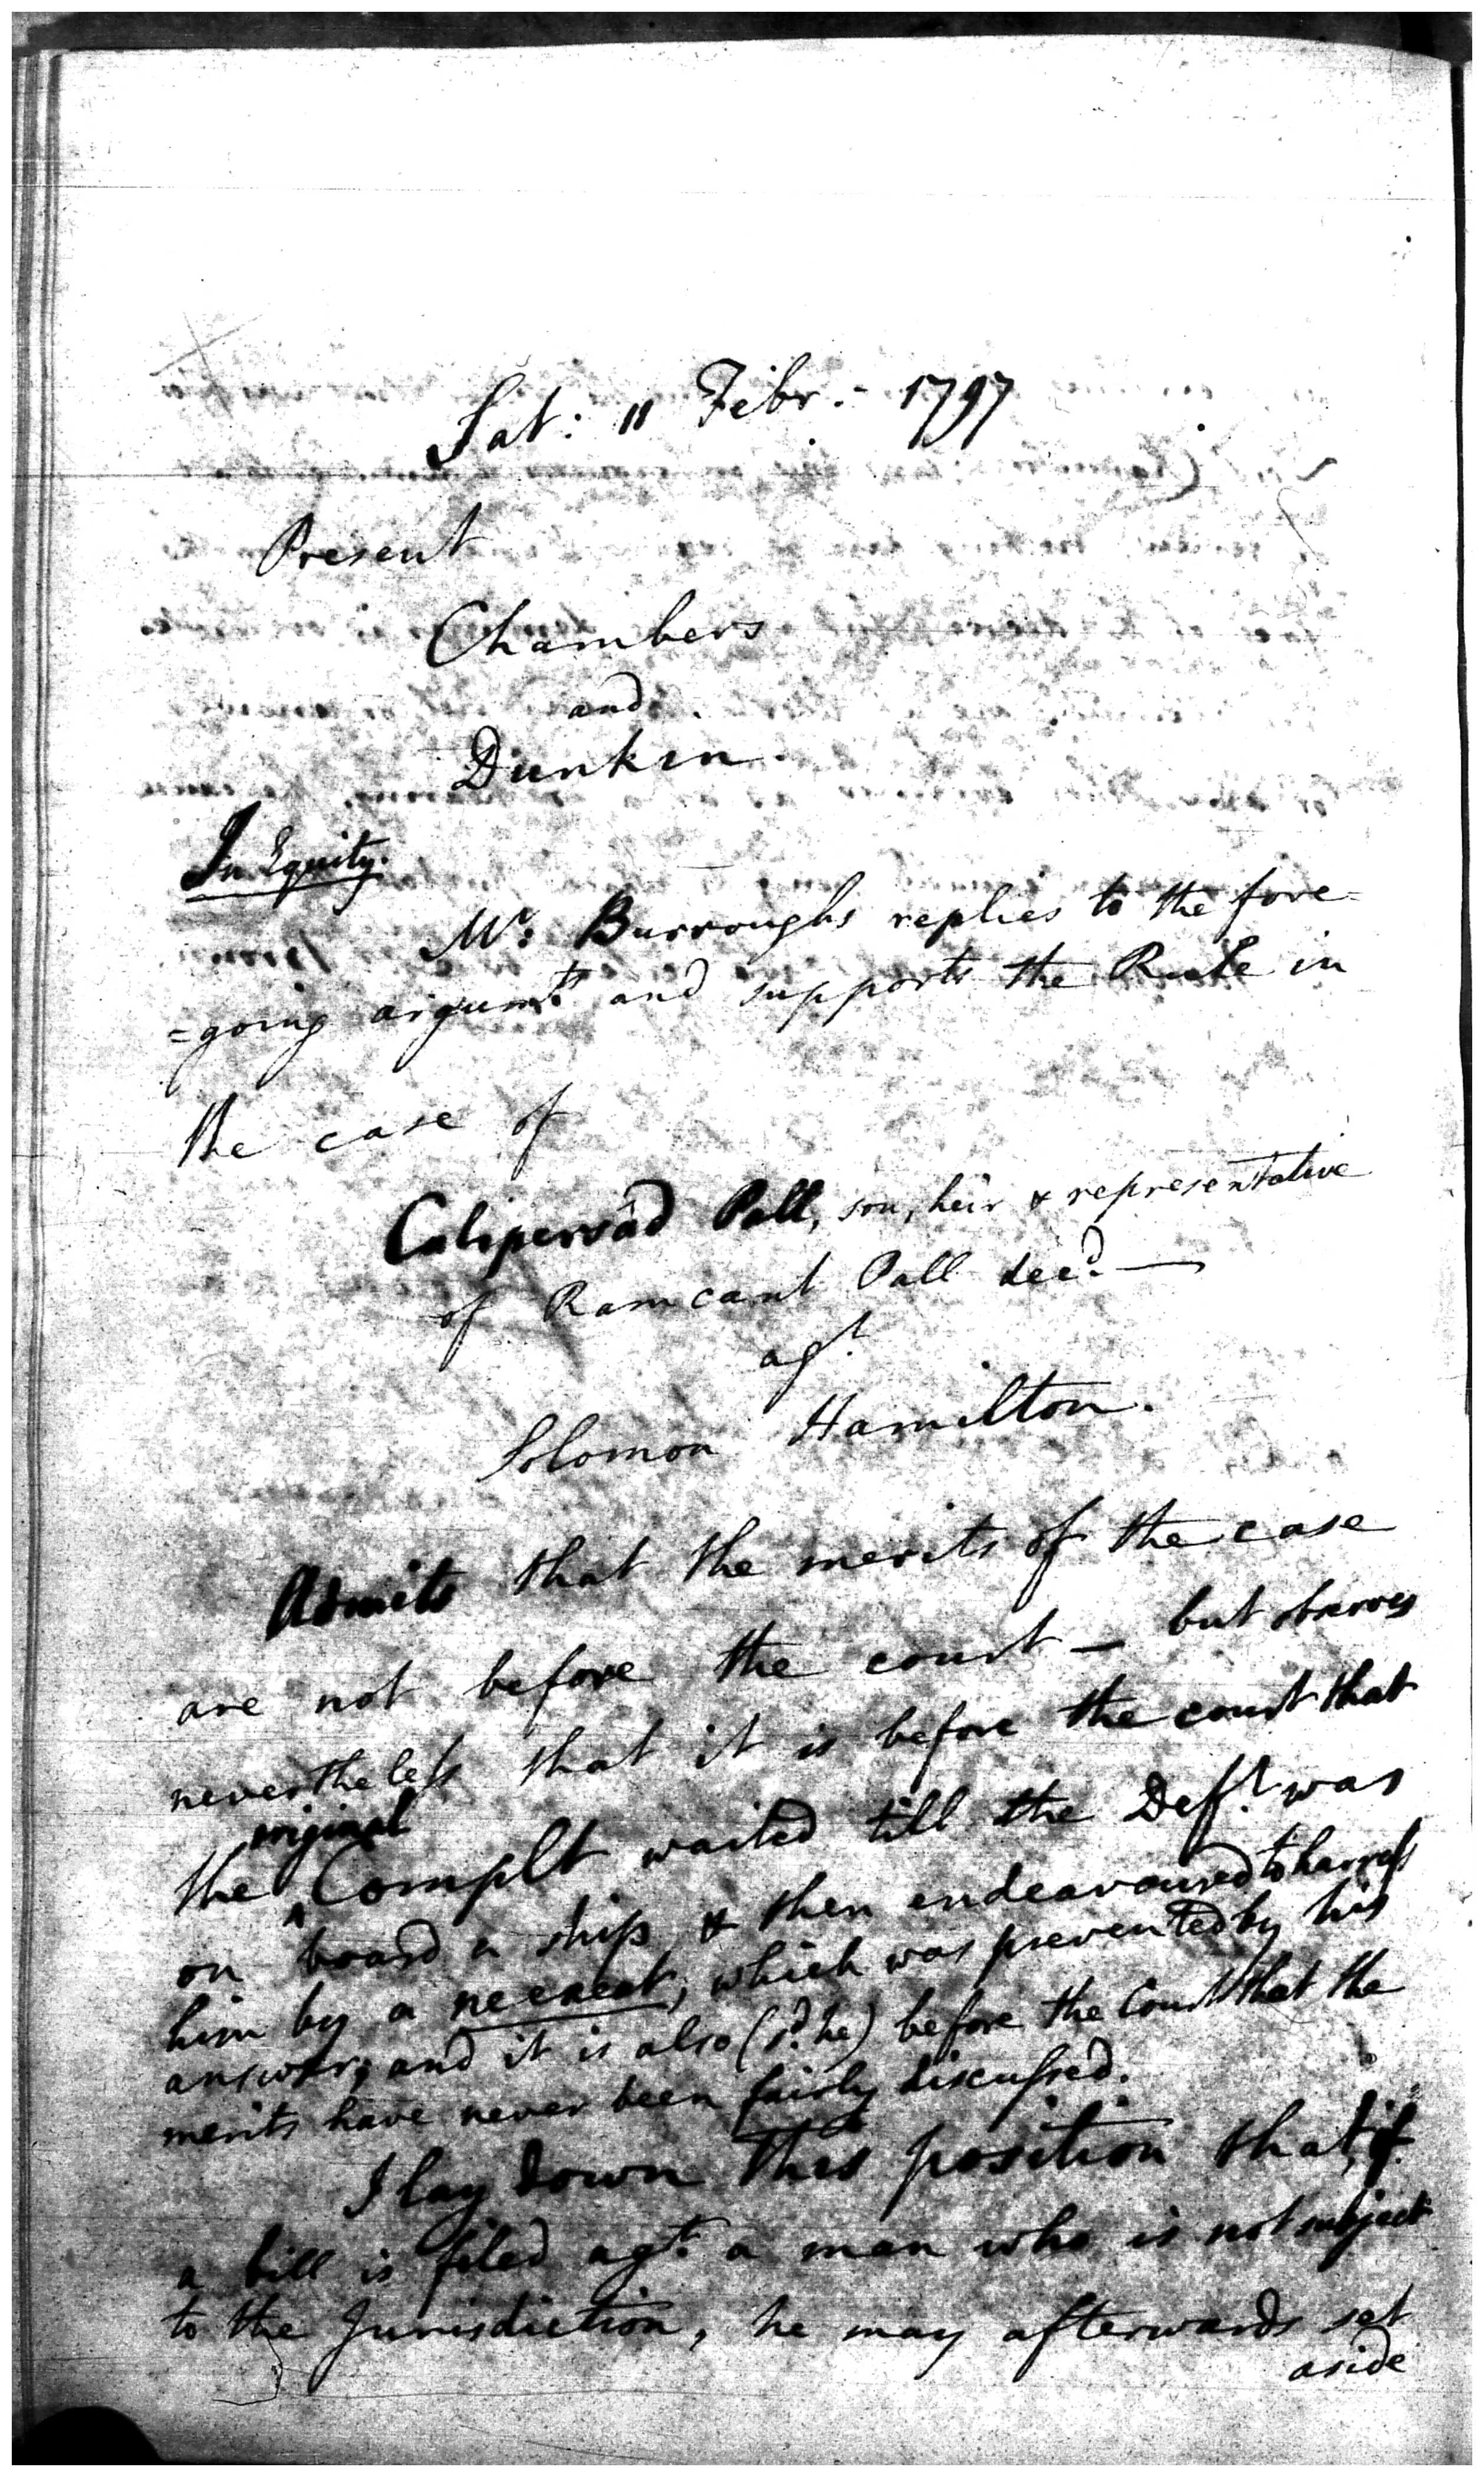 Sat: 11 Febr:- 1797
Present
Chambers
and
Dunkin.
In Equity.
Mr: Burroughs replies to the fore-
=going argumts. and supports the Rule in
the case of
Calipersâd Pall, son, heir & representative
of Ramcant Pall decd.—
agt.
Solomon Hamilton.
Admits that the merits of the case
are not before the court — but observes
nevertheless that it is before the court that
original
the ^ Complt waited till the Deft. was
on board a ship & then endeavoured to harrass
him by a ne exeat, which was prevented by his
answer; and it is also (sd. he) before the Court that the
merits have never been fairly discussed.
I lay down this position that, if
a bill is filed agt. a man who is not subject
to the Jurisdiction, he may afterwards set
aside